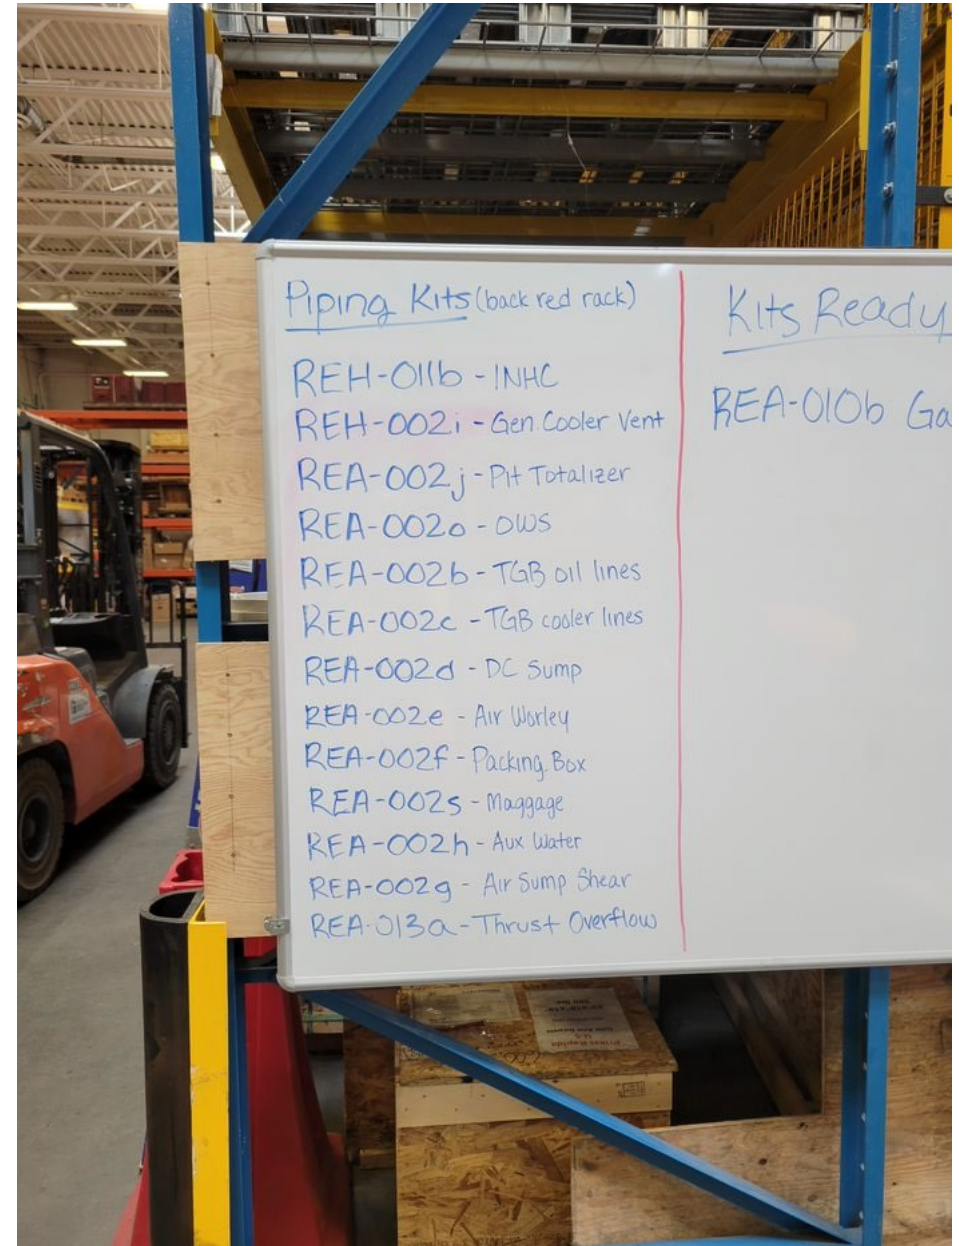 Piping Kits (back red rack)
REH-011b - INHC
REH-002i - Gen. Cooler Vent
REA-002j - Pit Totalizer
REA-002o - OWS
REA-002b - TGB oil lines
REA-002c - TGB cooler lines
REA-002d - DC Sump
REA-002e - Air Worley
REA-002f - Packing Box
REA-002s - Maggage
REA-002h - Aux Water
REA-002g - Air Sump Shear
REA-013a - Thrust Overflow
Kits Ready
REA-010b Ga